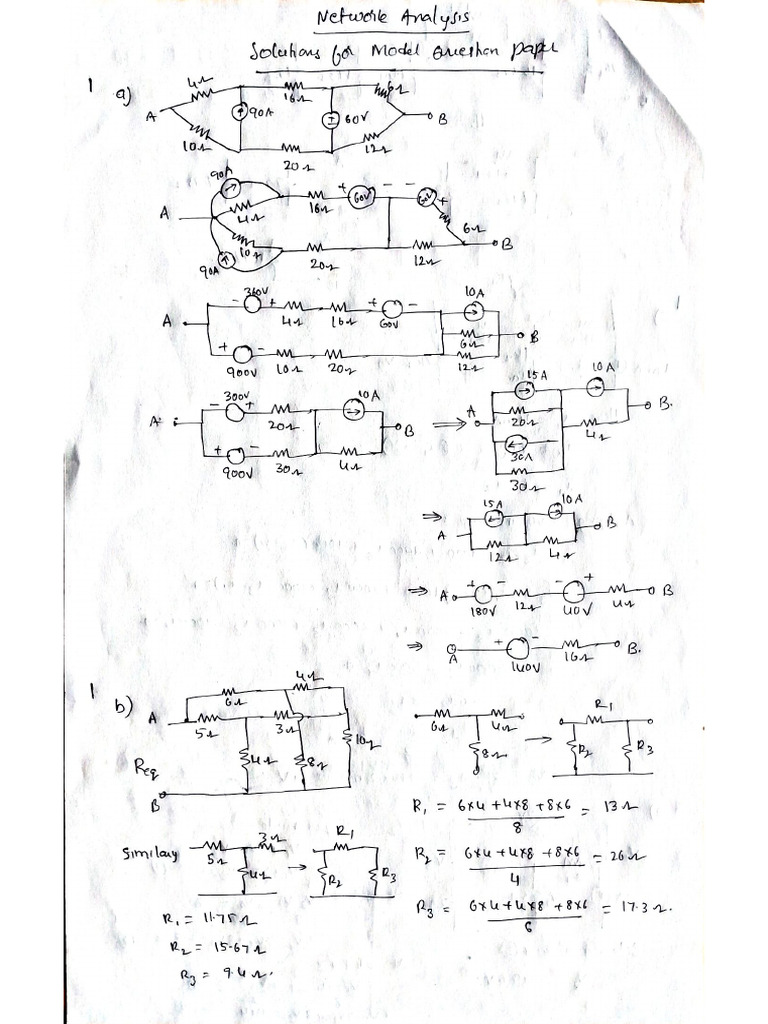 Network Analysis
Solutions for Model Question paper
1 a)
4Ω 16Ω 6Ω
A 90A 60V B
10Ω 20Ω 12Ω
90A + - - +
16Ω 60V 60V
A 4Ω 6Ω
10Ω B
90A 20Ω 12Ω
360V 10A
- + + -
A 4Ω 16Ω 60V B
+ - 6Ω
900V 10Ω 20Ω 12Ω
300V 10A
- +
A 20Ω B
+ -
900V 30Ω 4Ω
⇒
15A 10A
A 20Ω B.
30A 4Ω
30Ω
⇒ 15A 10A
A B
12Ω 4Ω
⇒ A + - - + B
180V 12Ω 40V 4Ω
⇒ + -
A 140V 16Ω B.
1 b)
6Ω 4Ω
A 5Ω 3Ω
4Ω 8Ω 10Ω
Req
B
6Ω 4Ω → R1
8Ω R2 R3
R1 = 6×4 + 4×8 + 8×6 / 8 = 13Ω
R2 = 6×4 + 4×8 + 8×6 / 4 = 26Ω
R3 = 6×4 + 4×8 + 8×6 / 6 = 17.3Ω.
Similary 5Ω 3Ω → R1
4Ω R2 R3
R1 = 11.75Ω
R2 = 15.67Ω
R3 = 9.4Ω.